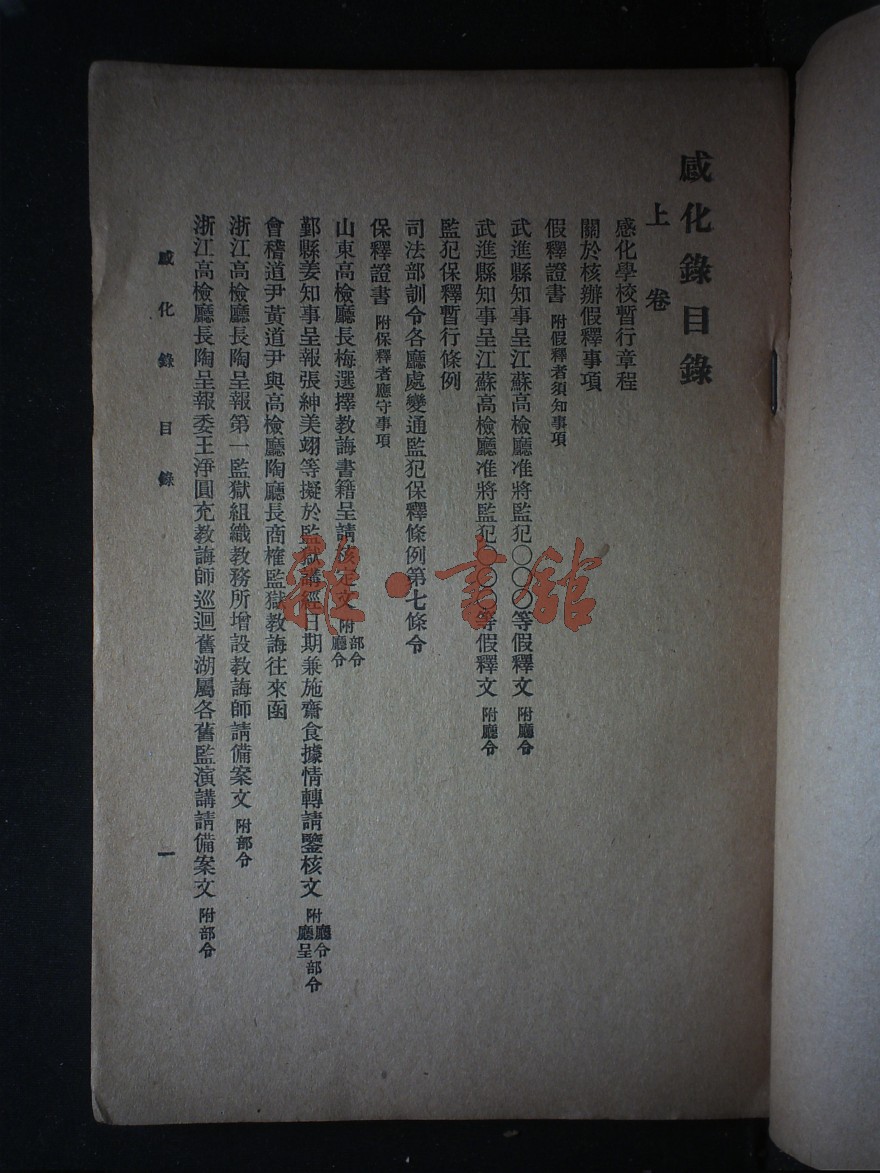 感化錄目錄
上卷
感化學校暫行章程
關於核辦假釋事項
假釋證書 附假釋者須知事項
武進縣知事呈江蘇高檢廳准將監犯〇〇〇等假釋文 附廳令
武進縣知事呈江蘇高檢廳准將監犯〇〇〇等假釋文 附廳令
監犯保釋暫行條例
司法部訓令各廳處變通監犯保釋條例第七條令
保釋證書 附保釋者應守事項
山東高檢廳長梅選擇教誨書籍呈請核定文 附部令廳令
鄞縣姜知事呈報張紳美翊等擬於監獄講經日期兼施齋食據情轉請鑒核文 附廳令廳呈部令
會稽道尹黃道尹與高檢廳陶廳長商榷監獄教誨往來函
浙江高檢廳長陶呈報第一監獄組織教務所增設教誨師請備案文 附部令
浙江高檢廳長陶呈報委王淨圓充教誨師巡迴舊湖屬各舊監演講請備案文 附部令
感化錄 目錄 一
雜·書館